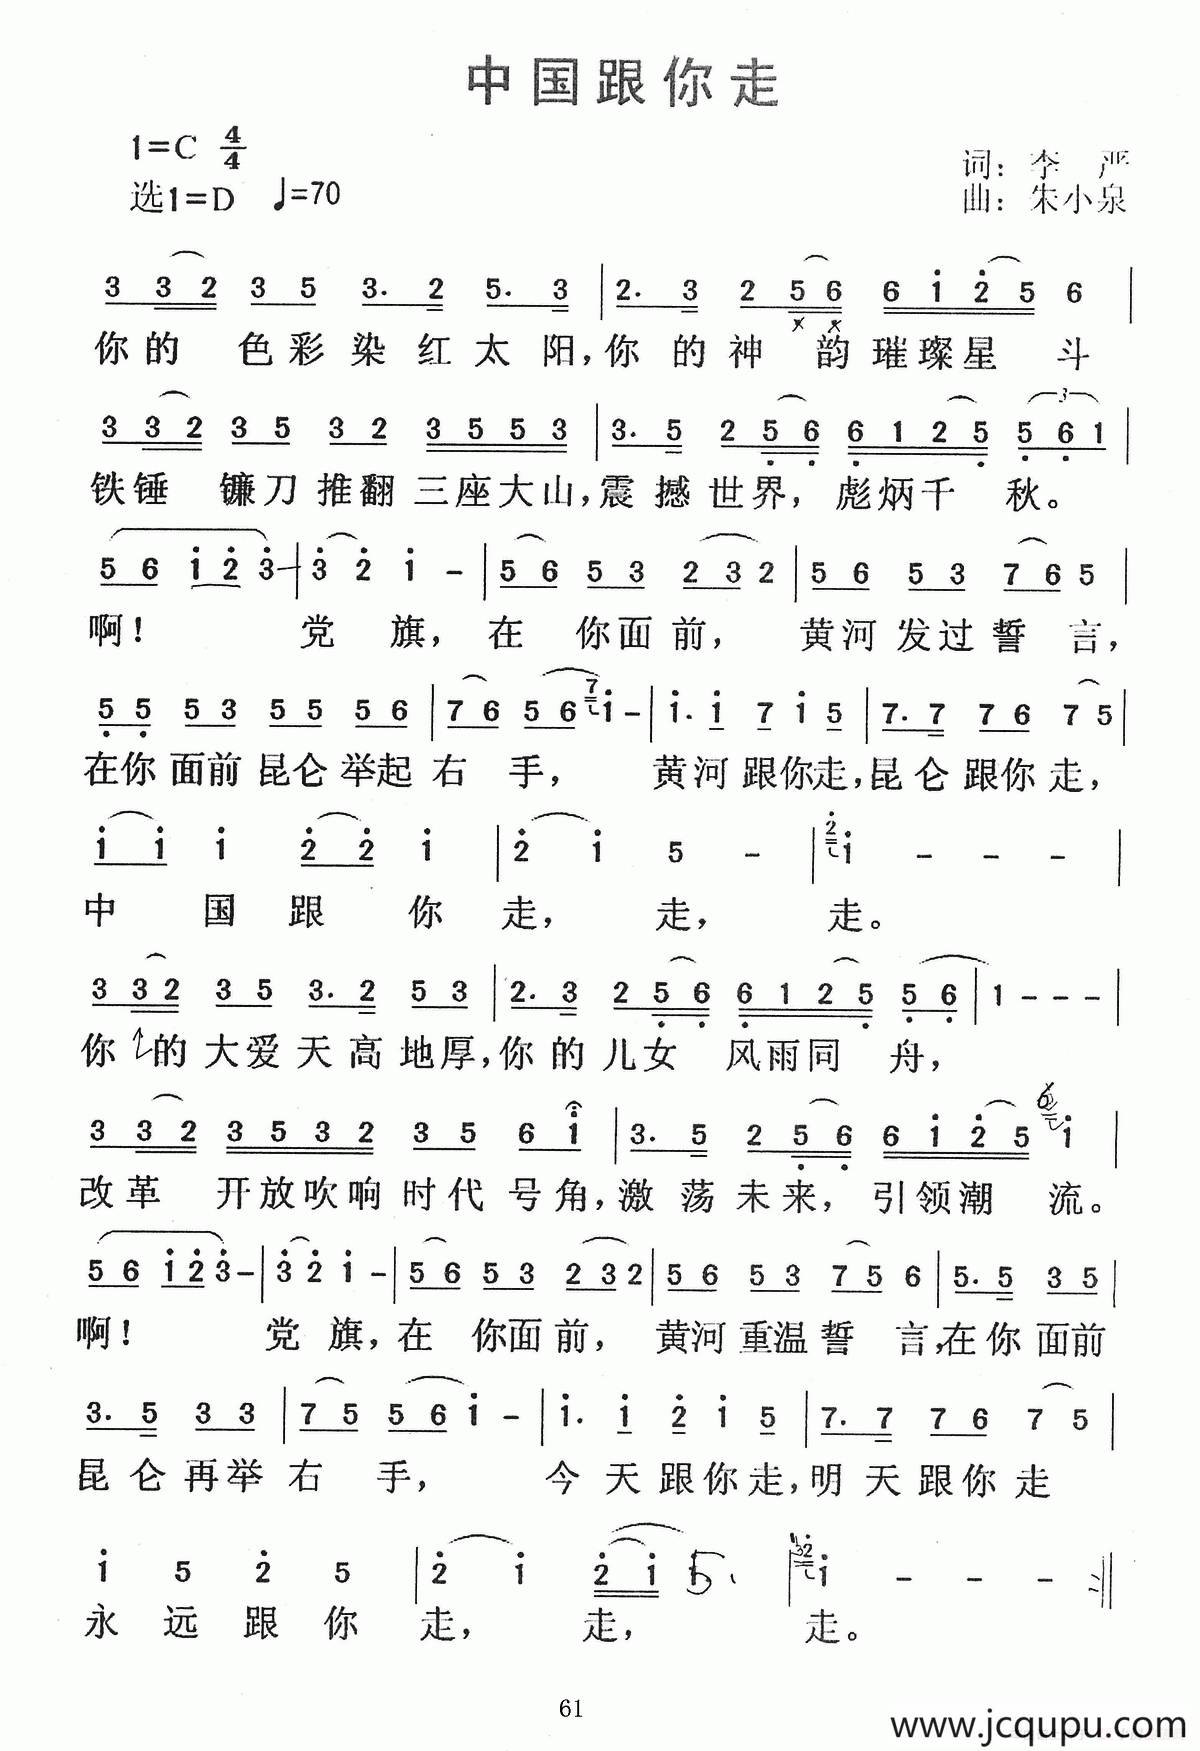 中国跟你走
1=C 4/4
词：李 严
选1=D ♩=70
曲：朱小泉
3 3 2 3 5 3. 2 5. 3 | 2. 3 2 5 6 6 1 2 5 6 |
你的 色彩染红太阳，你的神 韵璀璨星 斗
3 3 2 3 5 3 2 3 5 5 3 | 3. 5 2 5 6 6 1 2 5 5 6 1 |
铁锤 镰刀推翻三座大山，震撼世界，彪炳千 秋。
5 6 1 2 3 - | 3 2 1 - | 5 6 5 3 2 3 2 | 5 6 5 3 7 6 5 |
啊！ 党 旗，在 你面前，黄河发过誓 言，
5 5 5 3 5 5 5 6 | 7 6 5 6 7 1 - | 1. 1 7 1 5 | 7. 7 7 6 7 5 |
在你面前昆仑举起右 手， 黄河跟你走，昆仑跟你走，
1 1 1 2 2 1 | 2 1 5 - | 2 1 - - - |
中 国 跟 你 走， 走， 走。
3 3 2 3 5 3. 2 5 3 | 2. 3 2 5 6 6 1 2 5 5 6 | 1 - - - |
你 的大爱天高地厚，你的儿女 风雨同 舟，
3 3 2 3 5 3 2 3 5 6 1 | 3. 5 2 5 6 6 1 2 5 6 1 |
改革 开放吹响时代号角，激荡未来，引领潮 流。
5 6 1 2 3 - | 3 2 1 - | 5 6 5 3 2 3 2 | 5 6 5 3 7 5 6 | 5. 5 3 5 |
啊！ 党 旗，在 你面前，黄河重温誓 言，在你面前
3. 5 3 3 | 7 5 5 6 1 - | 1. 1 2 1 5 | 7. 7 7 6 7 5 |
昆仑再举右 手， 今天跟你走，明天跟你走
1 5 2 5 | 2 1 2 1 5. | 3 2 1 - - - :||
永 远 跟 你 走， 走， 走。
61
www.jcqupu.com